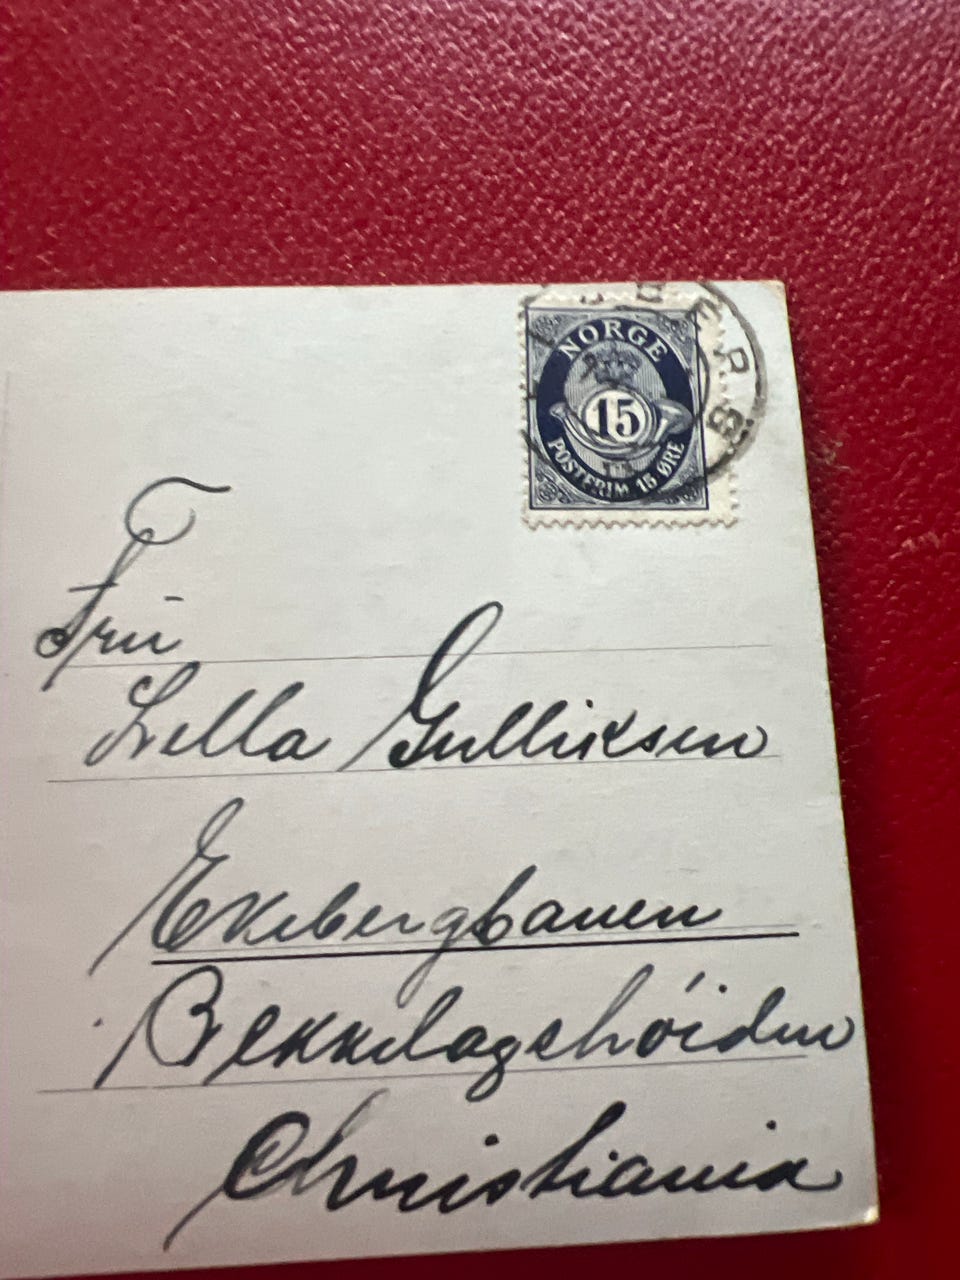 NORGE
15
POSTFRIM. 15 ØRE
Frú
Lella Gulliksen
Ekebergbanen
Bekkelagshöiden
Christiania